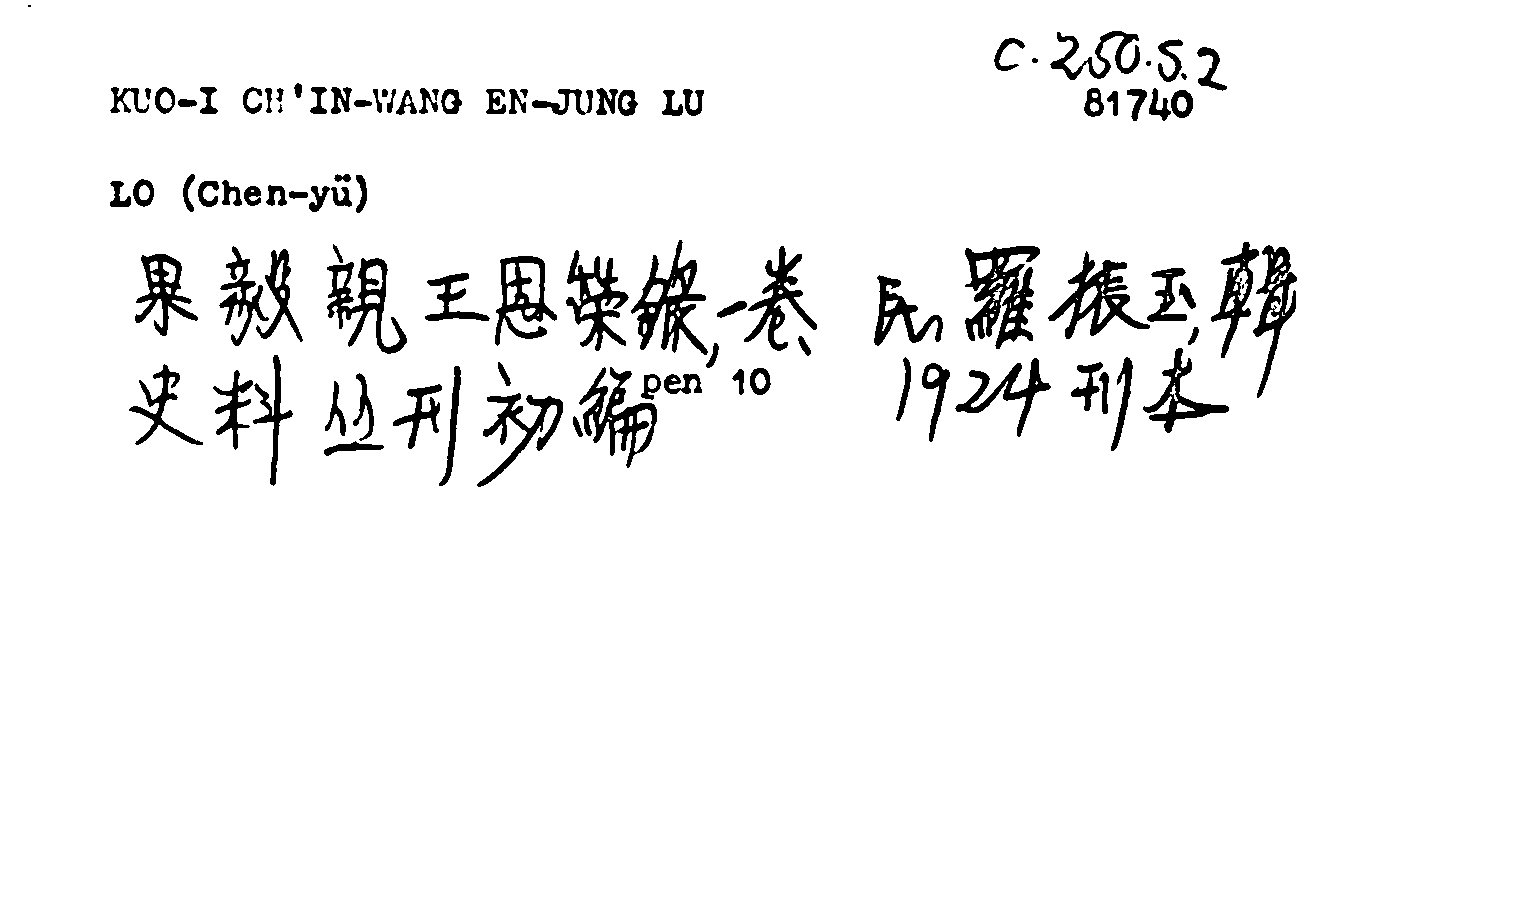 C.250.S.2
KUO-I CH'IN-WANG EN-JUNG LU
81740
LO (Chen-yü)
果毅親王恩榮錄,一卷、 民、羅振玉,輯
史料丛刊初編 pen 10 1924刊本